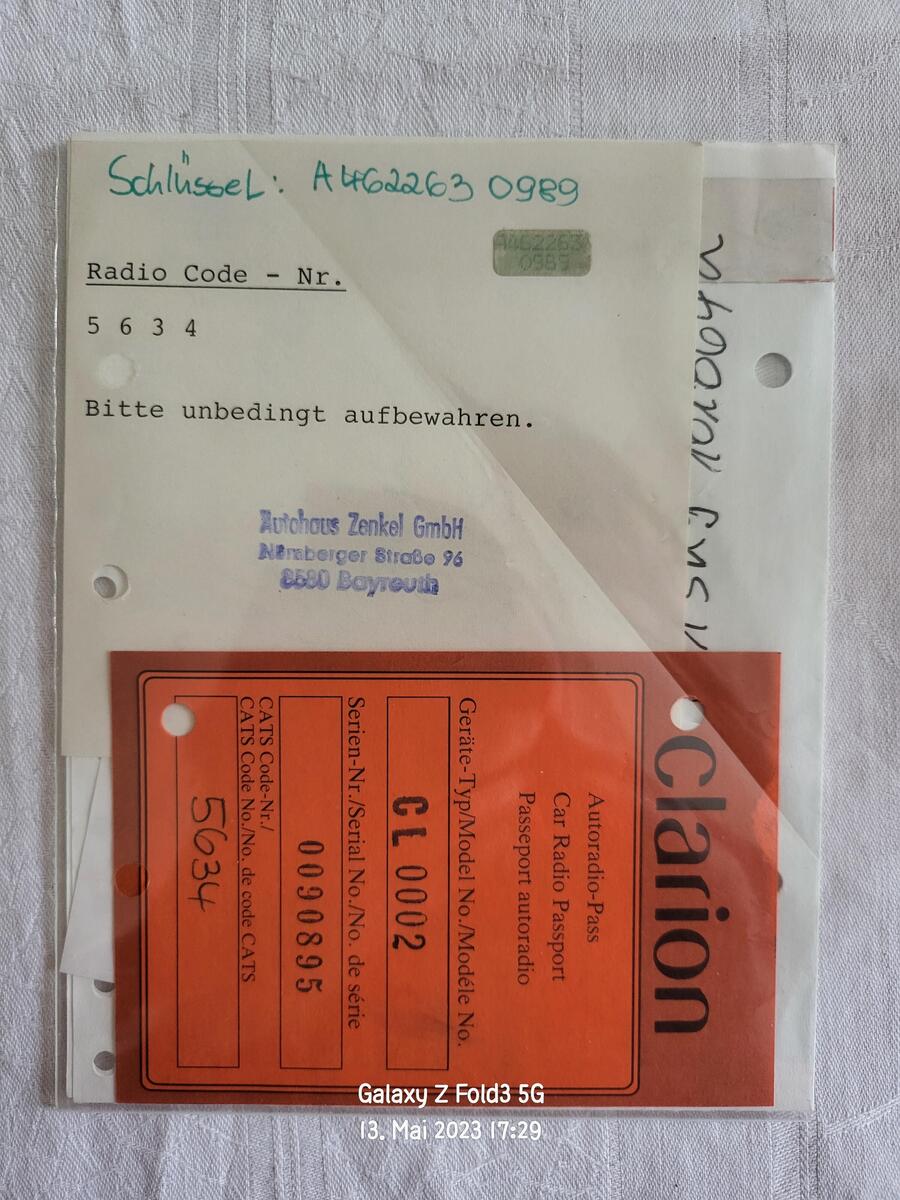 Schlüssel: A462263 0989
A462263
0989
Radio Code - Nr.
5 6 3 4
Bitte unbedingt aufbewahren.
Autohaus Zenkel GmbH
Nürnberger Straße 96
8580 Bayreuth
clarion
Autoradio-Pass
Car Radio Passport
Passeport autoradio
Geräte-Typ/Model No./Modéle No.
CL 0002
Serien-Nr./Serial No./No. de série
0090895
CATS Code-Nr./
CATS Code No./No. de code CATS
5634
Galaxy Z Fold3 5G
13. Mai 2023 17:29